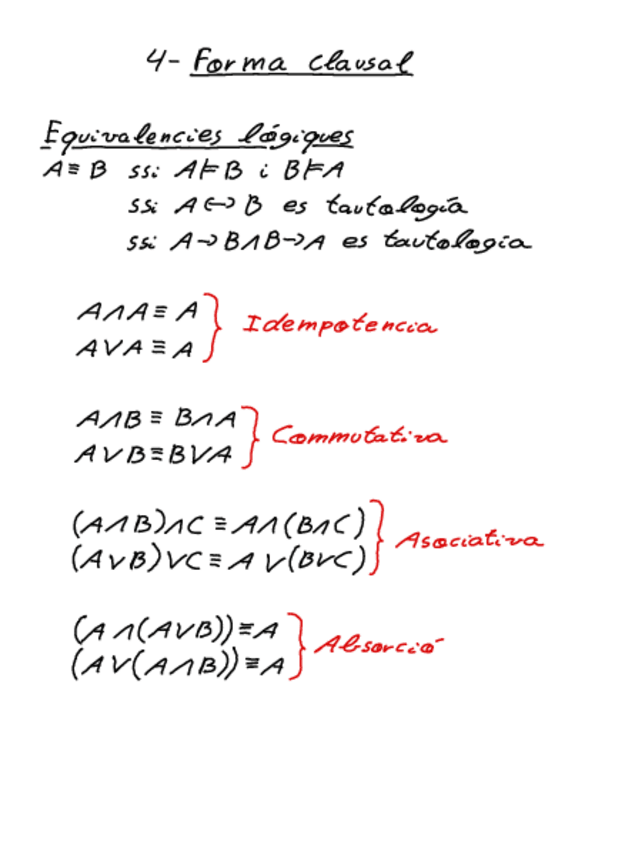 4- Forma clausal
Equivalencies lógiques
A≡B ssi A⊨B i B⊨A
ssi A↔B es tautología
ssi A→B∧B→A es tautologia
A∧A≡A
A∨A≡A
Idempotencia
A∧B≡B∧A
A∨B≡B∨A
Commutativa
(A∧B)∧C≡A∧(B∧C)
(A∨B)∨C≡A∨(B∨C)
Asociativa
(A∧(A∨B))≡A
(A∨(A∧B))≡A
Absorció